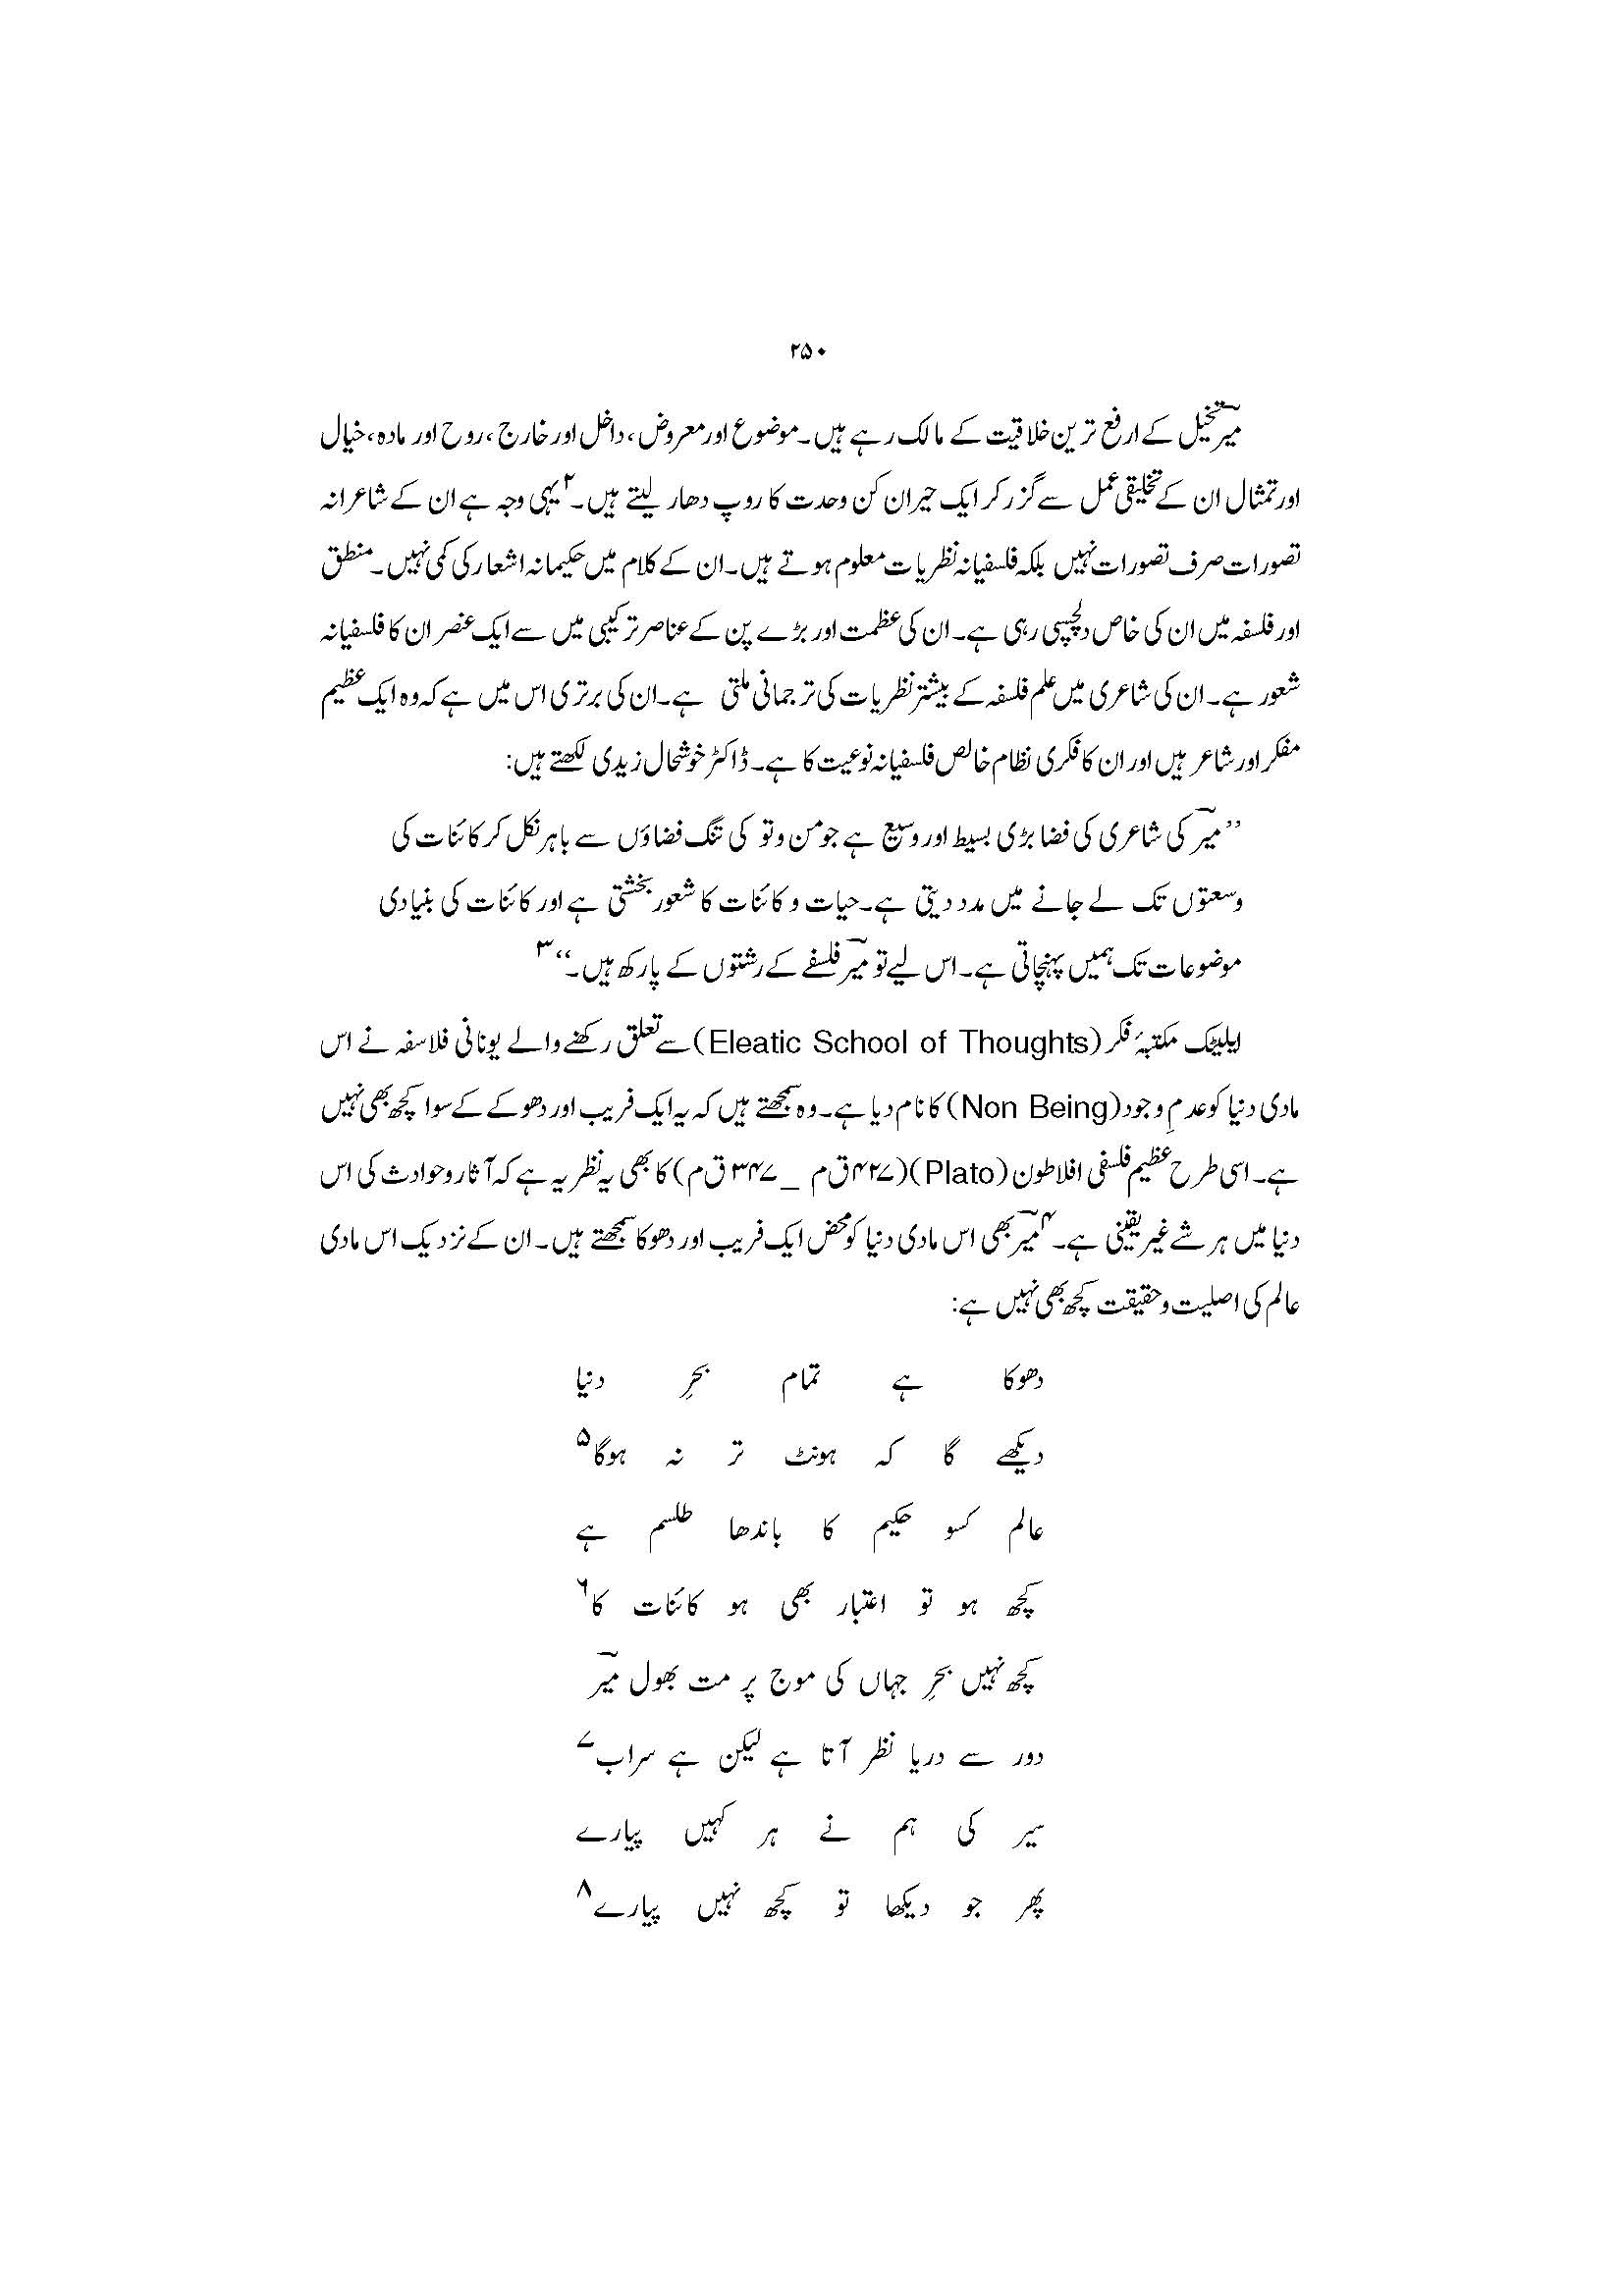 ۲۵۰
میرؔ تخیل کے ارفع ترین خلاقیت کے مالک رہے ہیں۔ موضوع اور معروض، داخل اور خارج، روح اور مادہ، خیال
اور تمثال ان کے تخلیقی عمل سے گزر کر ایک حیران کن وحدت کا روپ دھار لیتے ہیں۔۲ یہی وجہ ہے ان کے شاعرانہ
تصورات صرف تصورات نہیں بلکہ فلسفیانہ نظریات معلوم ہوتے ہیں۔ ان کے کلام میں حکیمانہ اشعار کی کمی نہیں۔ منطق
اور فلسفہ میں ان کی خاص دلچسپی رہی ہے۔ ان کی عظمت اور بڑے پن کے عناصر ترکیبی میں سے ایک عنصر ان کا فلسفیانہ
شعور ہے۔ ان کی شاعری میں علم فلسفہ کے بیشتر نظریات کی ترجمانی ملتی ہے۔ ان کی برتری اس میں ہے کہ وہ ایک عظیم
مفکر اور شاعر ہیں اور ان کا فکری نظام خالص فلسفیانہ نوعیت کا ہے۔ ڈاکٹر خوشحال زیدی لکھتے ہیں:
’’میرؔ کی شاعری کی فضا بڑی بسیط اور وسیع ہے جو من و تو کی تنگ فضاؤں سے باہر نکل کر کائنات کی
وسعتوں تک لے جانے میں مدد دیتی ہے۔ حیات و کائنات کا شعور بخشتی ہے اور کائنات کی بنیادی
موضوعات تک ہمیں پہنچاتی ہے۔ اس لیے تو میرؔ فلسفے کے رشتوں کے پارکھ ہیں۔‘‘۳
ایلیٹک مکتبۂ فکر (Eleatic School of Thoughts) سے تعلق رکھنے والے یونانی فلاسفہ نے اس
مادی دنیا کو عدمِ وجود (Non Being) کا نام دیا ہے۔ وہ سمجھتے ہیں کہ یہ ایک فریب اور دھوکے کے سوا کچھ بھی نہیں
ہے۔ اسی طرح عظیم فلسفی افلاطون (Plato) (۴۲۷ ق م _ ۳۴۷ ق م) کا بھی یہ نظریہ ہے کہ آثار و حوادث کی اس
دنیا میں ہر شے غیر یقینی ہے۔۴ میرؔ بھی اس مادی دنیا کو محض ایک فریب اور دھوکا سمجھتے ہیں۔ ان کے نزدیک اس مادی
عالم کی اصلیت و حقیقت کچھ بھی نہیں ہے:
دھوکا ہے تمام بحرِ دنیا
دیکھے گا کہ ہونٹ تر نہ ہوگا۵
عالم کسو حکیم کا باندھا طلسم ہے
کچھ ہو تو اعتبار بھی ہو کائنات کا۶
کچھ نہیں بحرِ جہاں کی موج پر مت بھول میرؔ
دور سے دریا نظر آتا ہے لیکن ہے سراب۷
سیر کی ہم نے ہر کہیں پیارے
پھر جو دیکھا تو کچھ نہیں پیارے۸